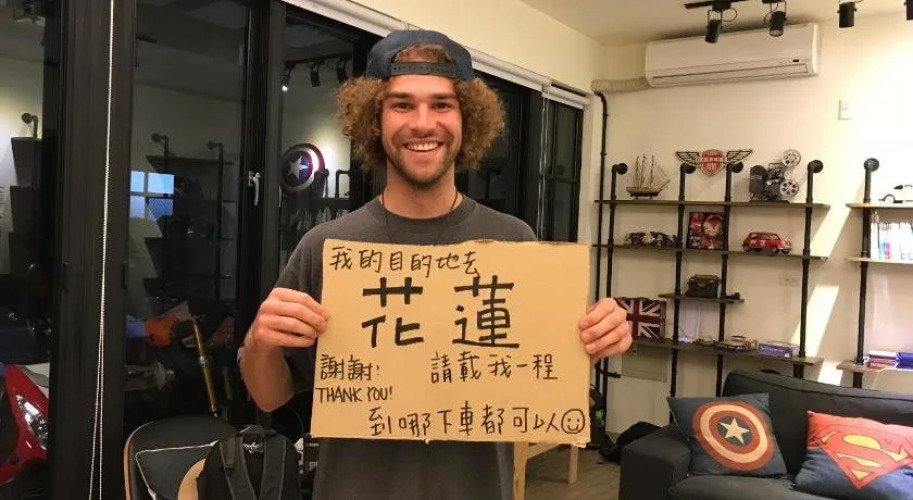 我的目的地去
花蓮
謝謝! 請載我一程
THANK YOU!
到哪下車都可以☺